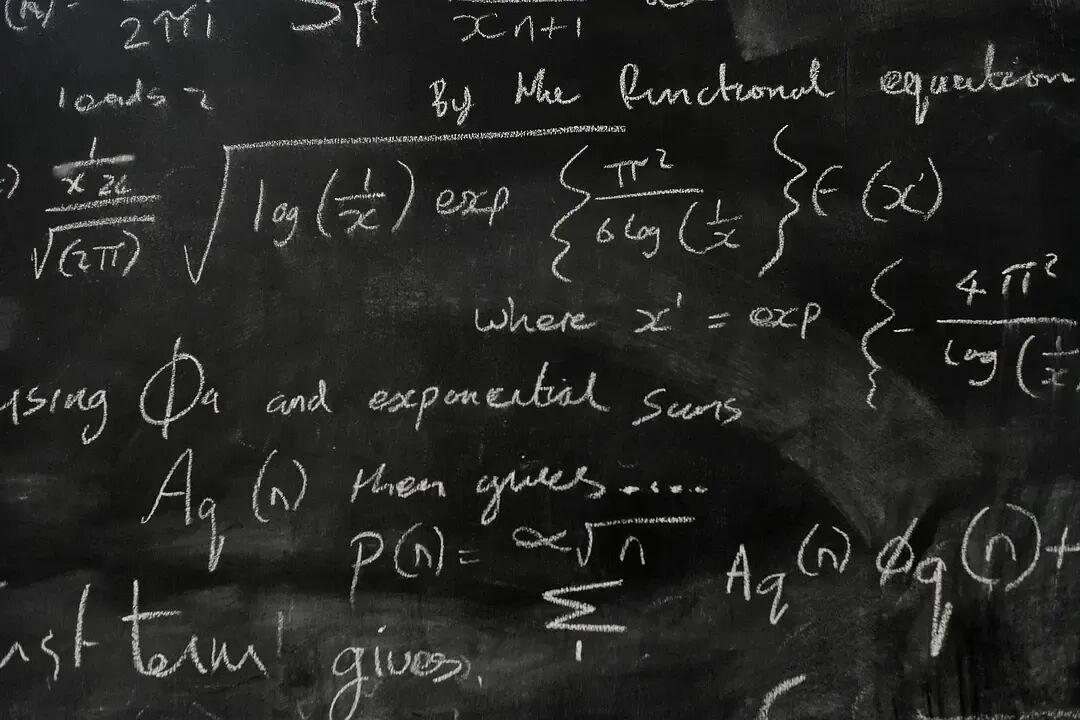 (n) = 1/2πi ∫Γ /xn+1
leads 2 By the functional equation
) x^(1/24)/√(2π) √log(1/x) exp {π²/6log(1/x} F (x')
where x' = exp {- 4π²/log(1/x
using Φq and exponential sums
Aq (n) then gives......
P(n) = ∑ 1 α√n Aq(n) ϕq(n)+
term gives.